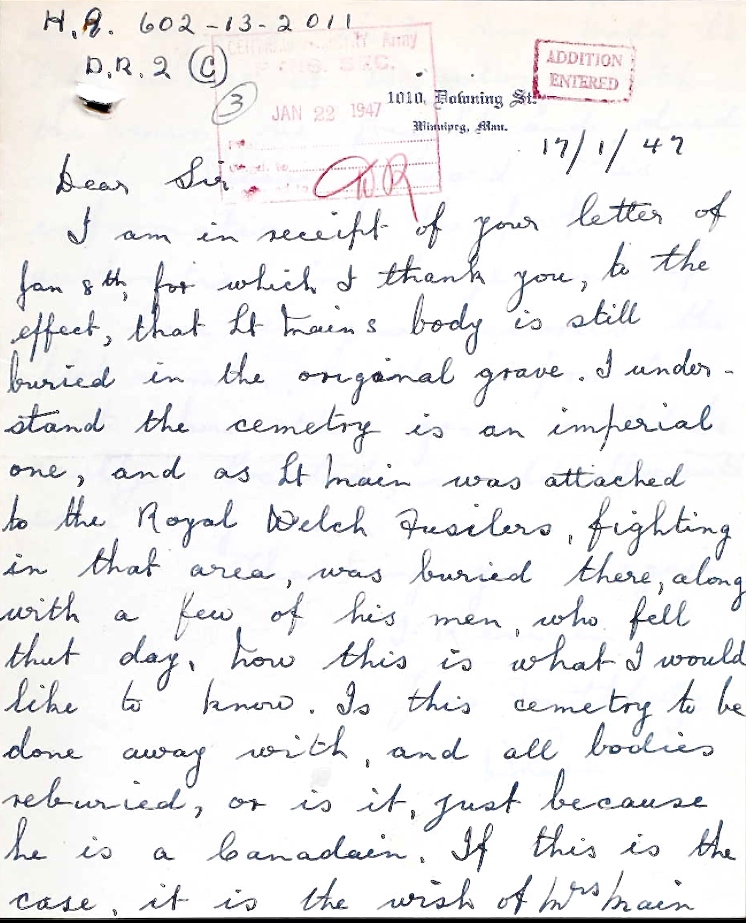 H.Q. 602-13-2011
D.R.2 (C)
Army
SEC.
ADDITION
ENTERED
3
JAN 22 1947
1010, Downing St.
Winnipeg, Man.
17/1/47
DR
Dear Sir
I am in receipt of your letter of
Jan 8th, for which I thank you, to the
effect, that Lt Mains body is still
buried in the original grave. I under-
stand the cemetry is an imperial
one, and as Lt Main was attached
to the Royal Welch Fusilers, fighting
in that area, was buried there, along
with a few of his men, who fell
that day. Now this is what I would
like to know. Is this cemetry to be
done away with, and all bodies
reburied, or is it, just because
he is a Canadain. If this is the
case, it is the wish of Mrs Main